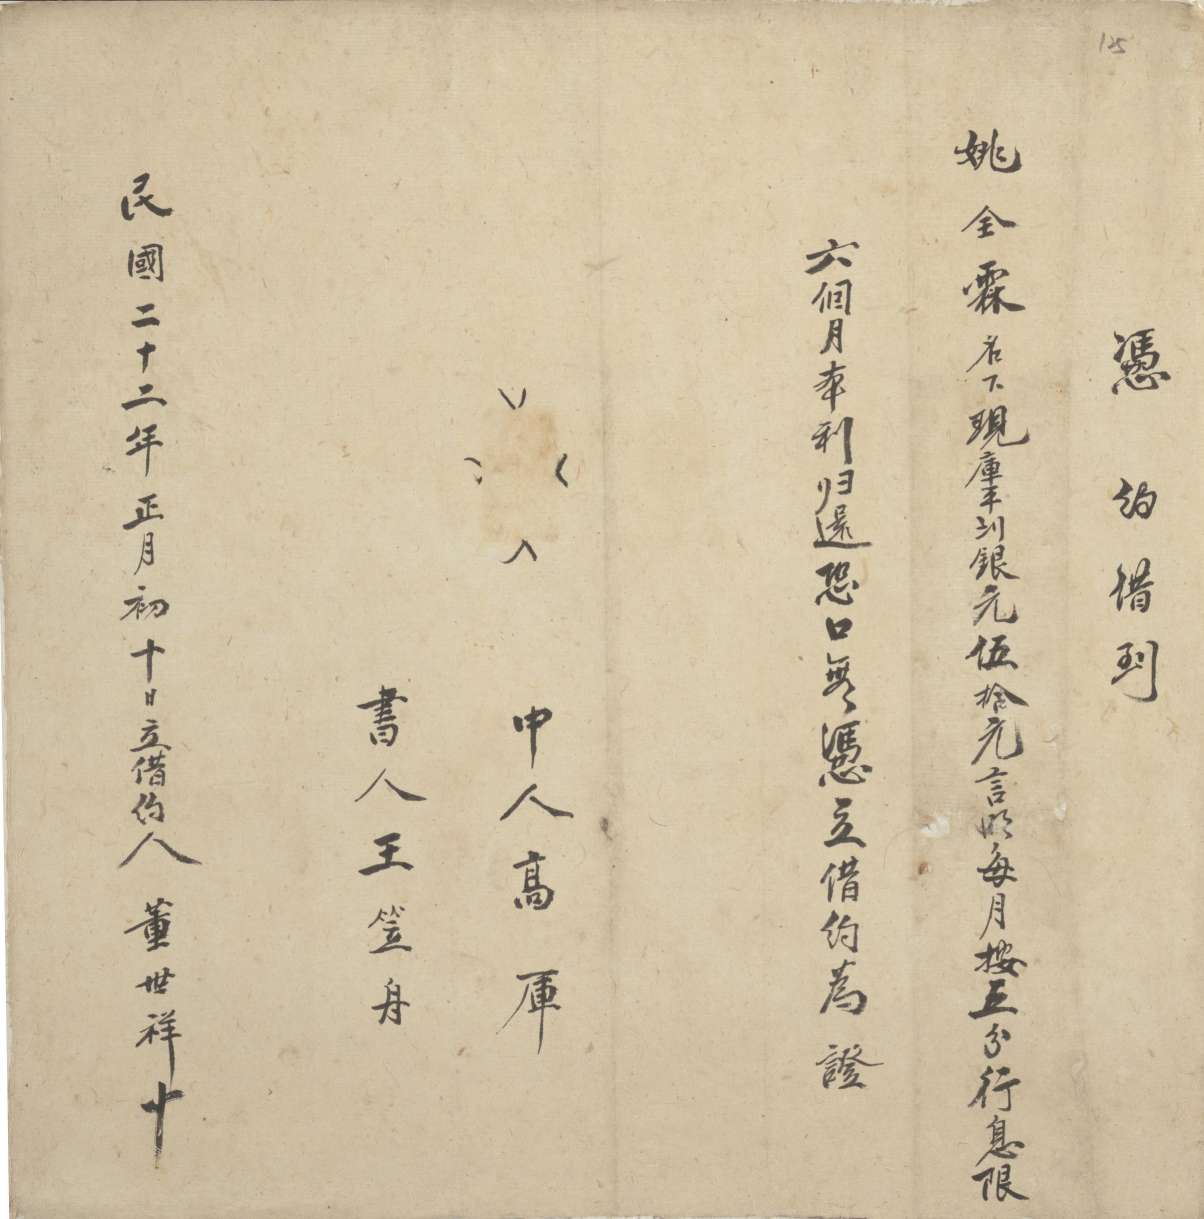 125
憑約借到
姚全霖名下現庫平到銀元伍拾元言明每月按五分行息限
六個月本利归還恐口無憑立借約為證
中人高厙
書人王笠舟
民國二十二年正月初十日立借約人董世祥十